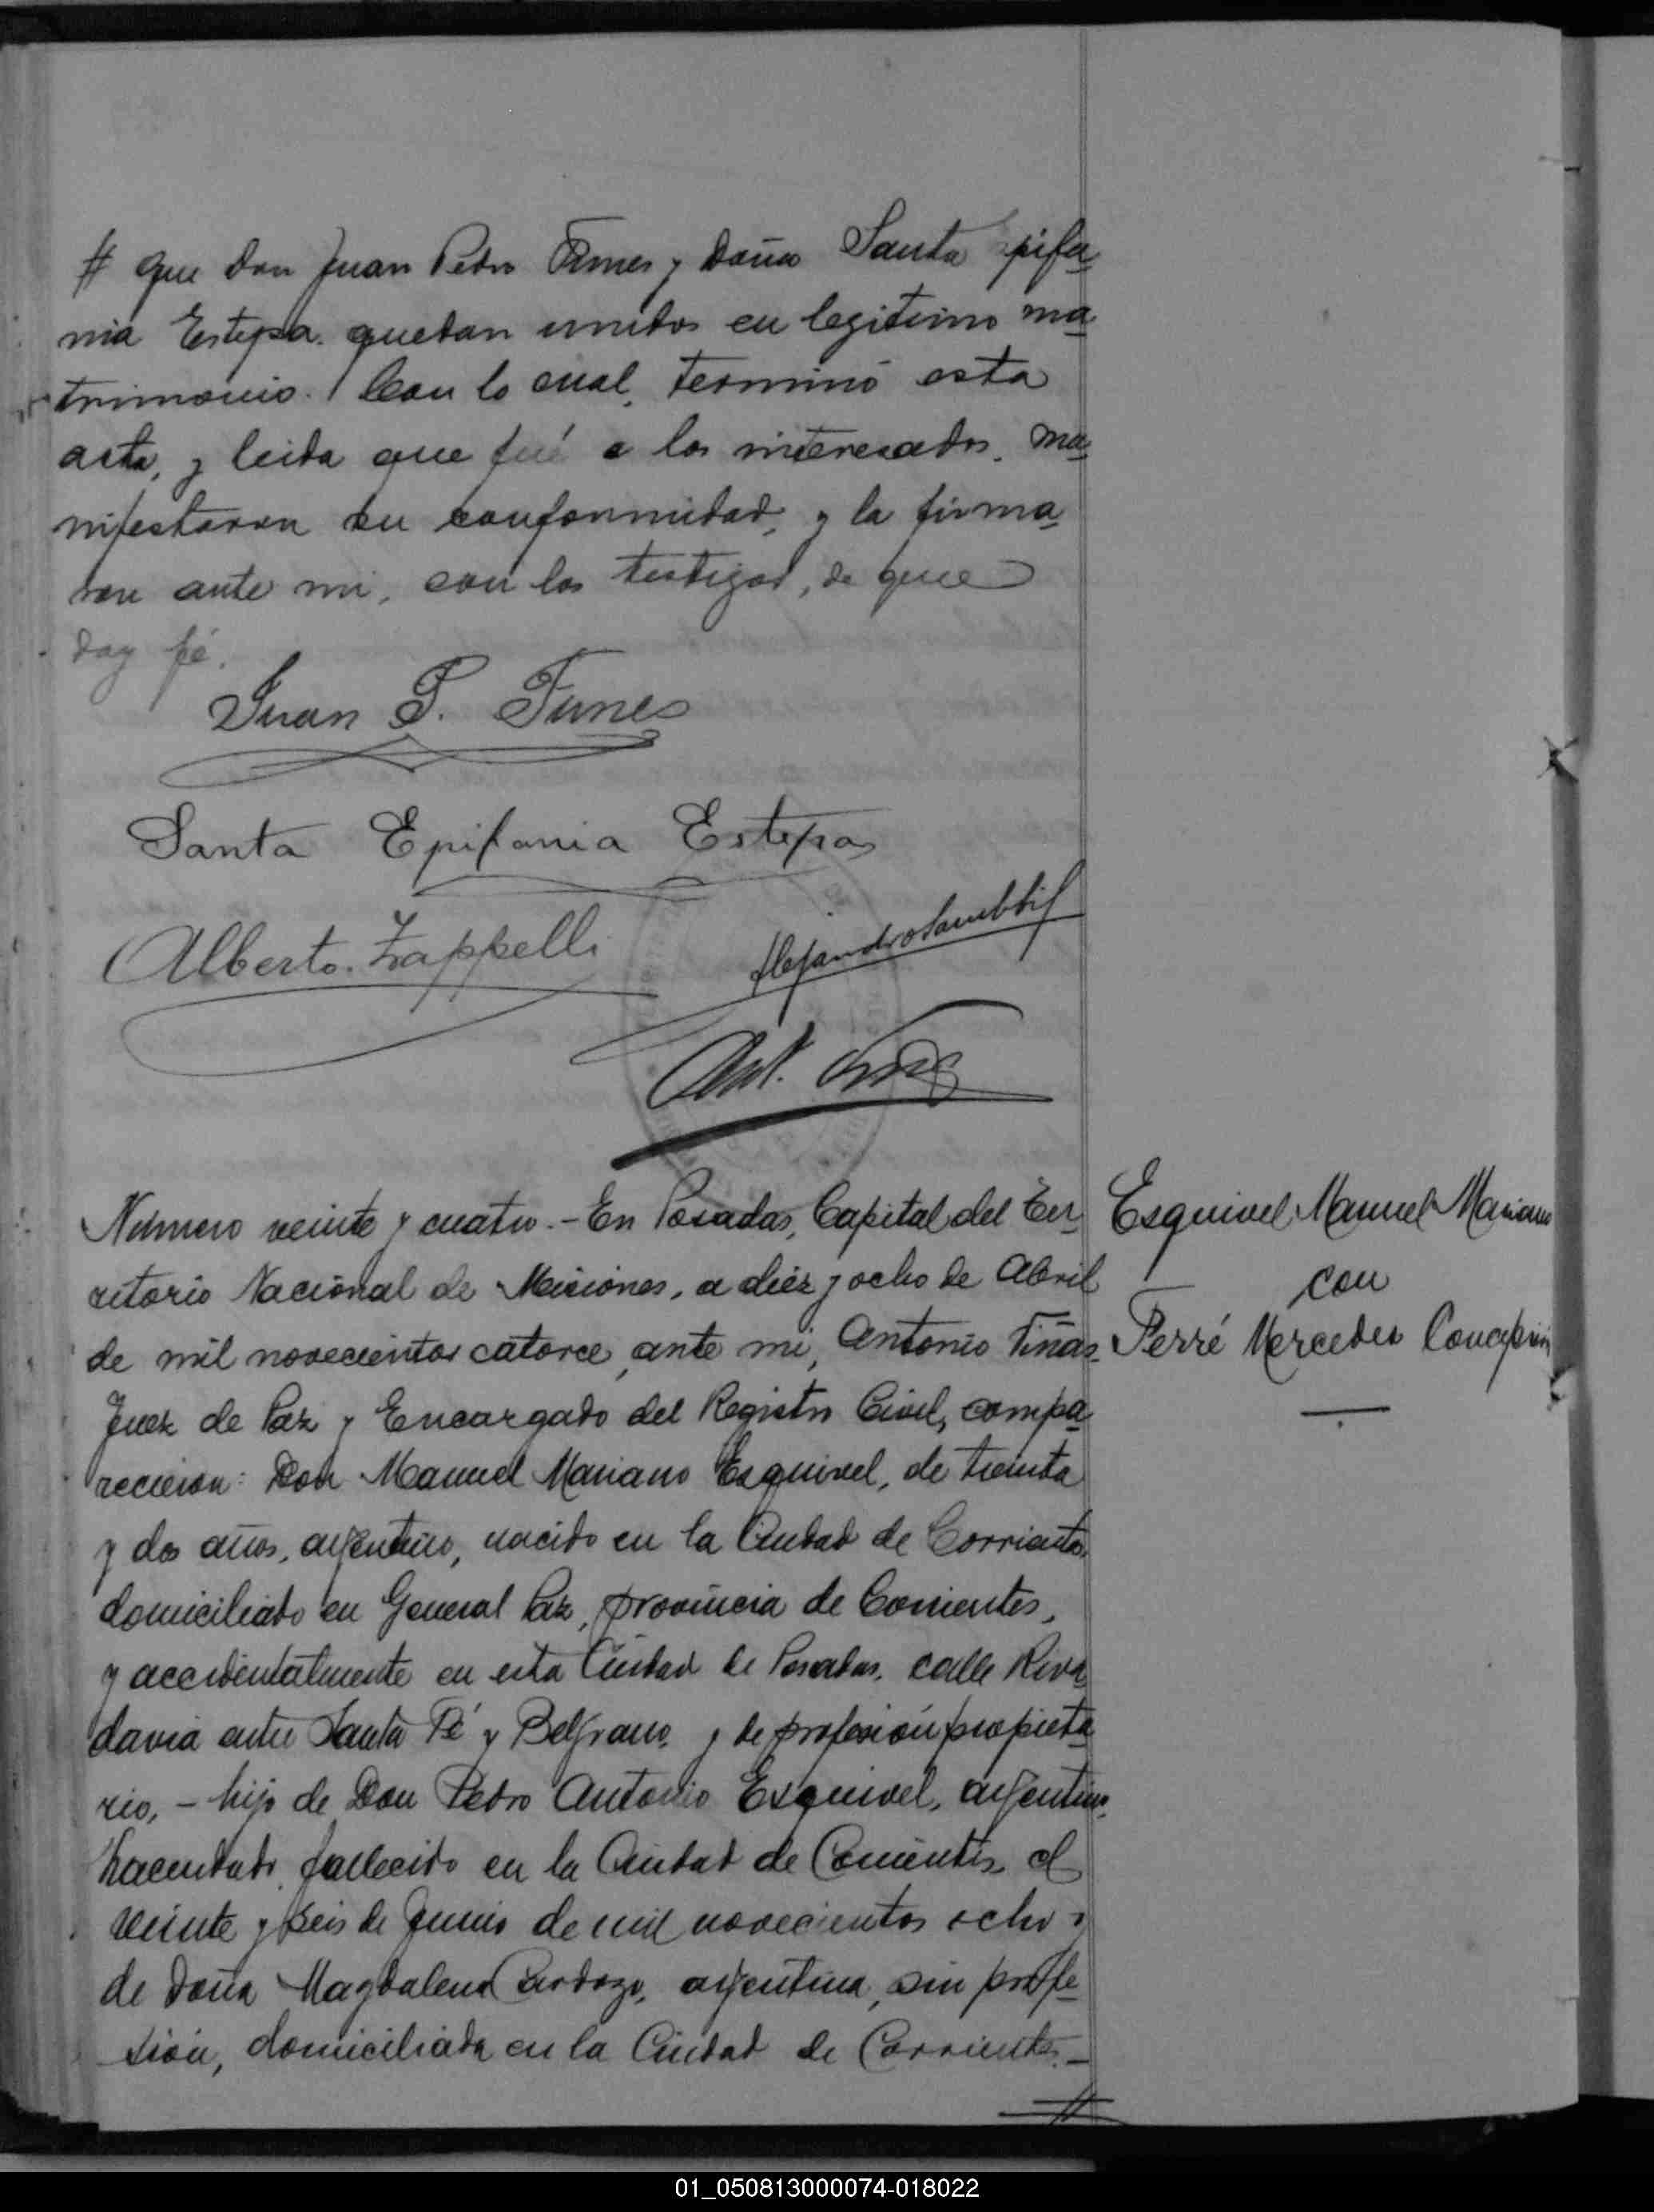 # que don Juan Pedro Funes y doña Santa Epifa
nia Estepa. quedan unidos en legitimo ma
trimonio. Con lo cual, terminó esta
acta, y leida que fué a los interesados, ma
nifestaron su conformidad, y la firma
ron ante mi, con los testigos, de que
doy fé.
Juan P. Funes
Santa Epifania Estepa
Alberto Zappelli
Alejandro
Ant.
Número veinte y cuatro.- En Posadas, Capital del Ter
ritorio Nacional de Misiones, a diez y ocho de Abril
de mil novecientos catorce, ante mi, Antonio Viñas
Juez de Paz y Encargado del Registro Civil, compa
recieron: Don Manuel Mariano Esquivel, de treinta
y dos años, argentino, nacido en la Ciudad de Corrientes,
domiciliado en General Paz, provincia de Corrientes,
y accidentalmente en esta Ciudad de Posadas, calle Riva
davia entre Santa Fé y Belgrano, y de profesión propieta
rio, - hijo de Don Pedro Antonio Esquivel, argentino,
hacendado, fallecido en la Ciudad de Corrientes, el
veinte y seis de Junio de mil novecientos ocho y
de Doña Magdalena Cardozo, argentina, sin profe
sión, domiciliada en la Ciudad de Corrientes.-
Esquivel Manuel Mariano
con
Ferré Mercedes Concepción
01_050813000074-018022